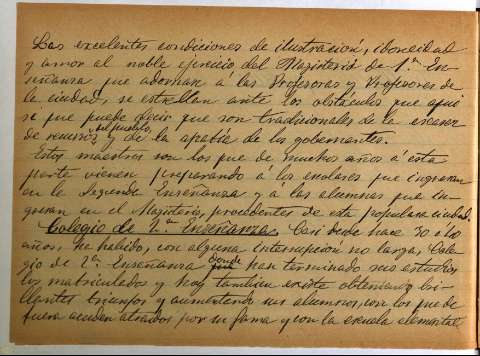 Las excelentes condiciones de ilustración, idoneidad
y amor al noble ejercicio del Magisterio de 1.ª En-
señanza que adornan á las Profesoras y Profesores de
la ciudad, se estrellan ante los obstáculos que aquí
se que puede decir que son tradicionales de la escasez
de recursos del pueblo, y de la apatía de los gobernantes.
Estos maestros son los que de muchos años á esta
parte vienen preparando á los escolares que ingresan
en la Segunda Enseñanza y á las alumnas que in-
gresan en el Magisterio, procedentes de esta populosa ciudad.
Colegio de 2.ª Enseñanza. Casi desde hace 30 o 40
años, ha habido, con alguna interrupción no larga, Cole-
gio de 2.ª Enseñanza donde han terminado sus estudios
los matriculados y hoy tambien existe obteniendo bri-
llantes triunfos y aumentando sus alumnos, con los que de
fuera acuden atraidos por su fama y con la escuela elemental